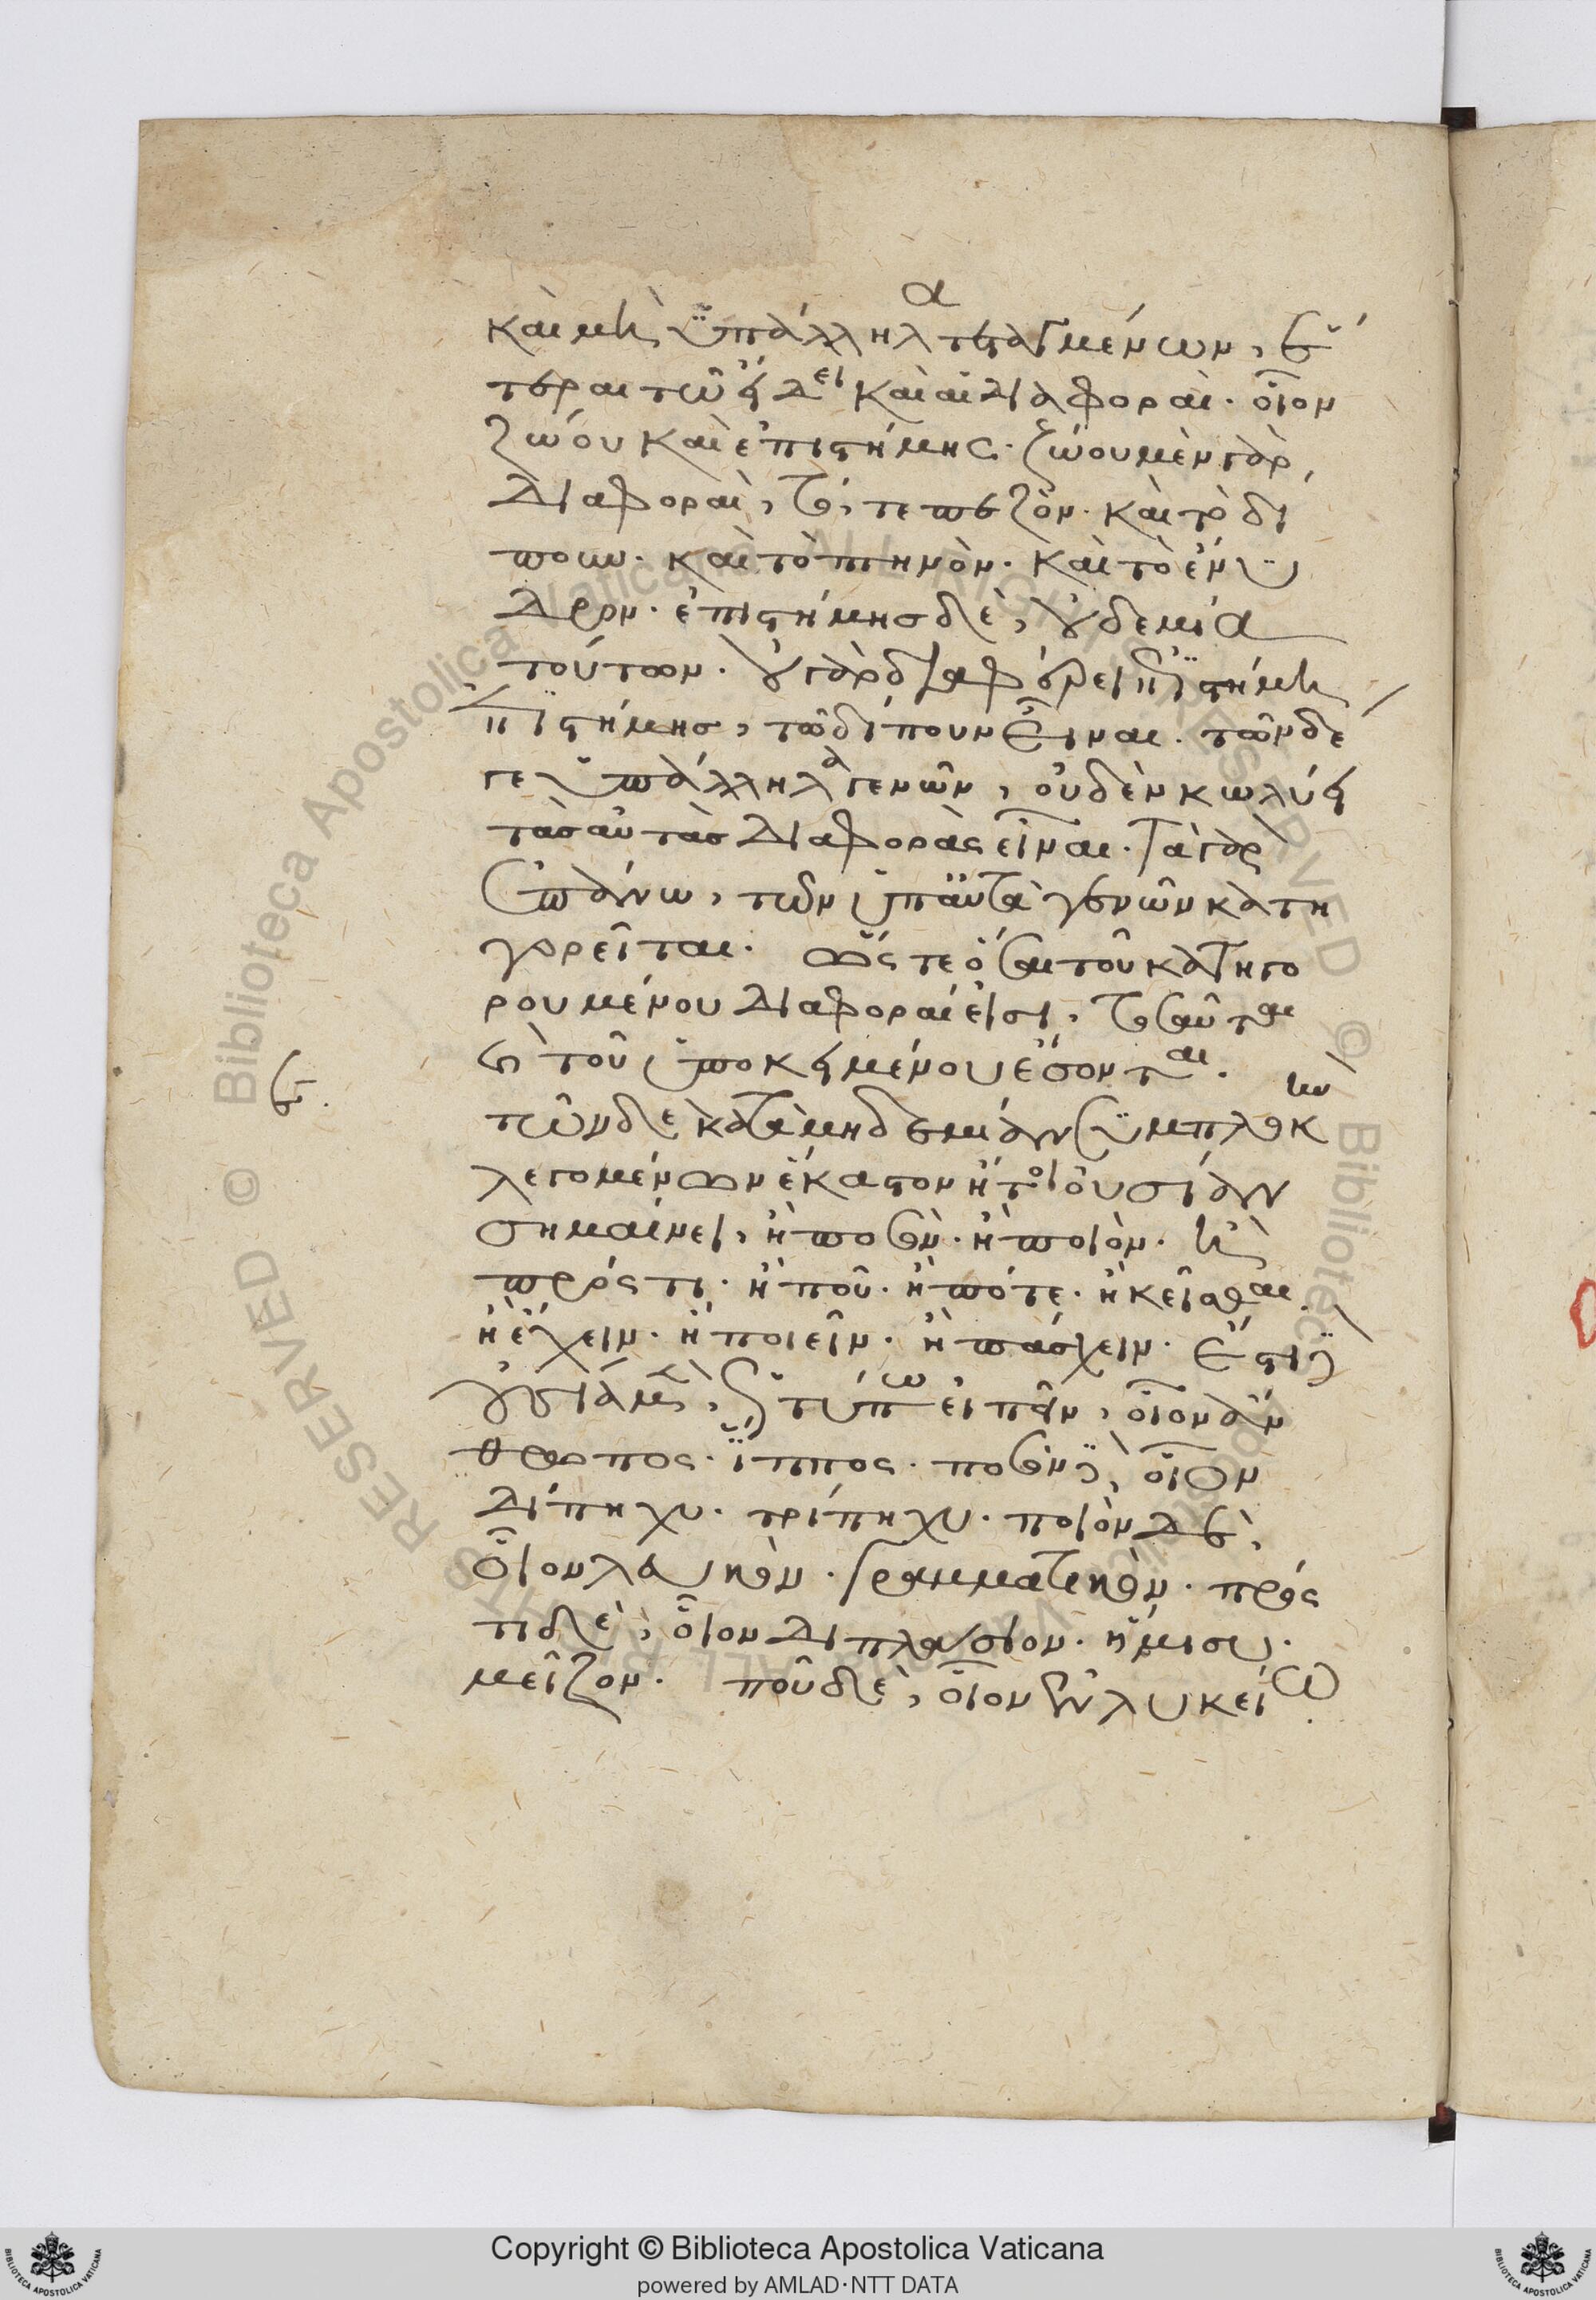 καὶ μὴ ὑπάλληλα τεταγμένων, ἕ
τεραι τῷ εἴδει καὶ αἱ διαφοραί. οἷον
ζώου καὶ ἐπιστήμης. ζώου μὲν γὰρ
διαφοραὶ, τό, τε πεζὸν. καὶ τὸ δί
πουν. καὶ τὸ πτηνὸν. καὶ τὸ ἔνυ
δρον. ἐπιστήμης δὲ, οὐδεμία
τούτων. οὐ γὰρ διαφέρει ἐπιστήμη
ἐπιστήμης, τῷ δίπουν εἶναι. τῶν δέ
γε ὑπάλληλα γενῶν, οὐδὲν κωλύει
τὰς αὐτὰς διαφορὰς εἶναι. τὰ γὰρ
ἐπάνω, τῶν ὑπ' αὐτὰ γενῶν κατη
γορεῖται. ὥστε ὅσαι τοῦ κατηγο
ρουμένου διαφοραί εἰσι, τοσαῦται
καὶ τοῦ ὑποκειμένου ἔσονται.
τῶν δὲ κατὰ μηδεμίαν συμπλοκὴν
λεγομένων ἕκαστον ἤτοι οὐσίαν
σημαίνει, ἢ ποσὸν. ἢ ποιὸν. ἢ
πρός τι. ἢ ποῦ. ἢ πότε. ἢ κεῖσθαι.
ἢ ἔχειν. ἢ ποιεῖν. ἢ πάσχειν. ἔστι δὲ
οὐσία μὲν, ὡς τύπω εἰπεῖν, οἷον ἄν
θρωπος. ἵππος. ποσὸν δὲ, οἷον
δίπηχυ. τρίπηχυ. ποιὸν δὲ,
οἷον λευκὸν. γραμματικὸν. πρός
τι δὲ, οἷον διπλάσιον. ἥμισυ.
μεῖζον. ποῦ δὲ, οἷον ἐν λυκείω
Copyright © Biblioteca Apostolica Vaticana
powered by AMLAD·NTT DATA